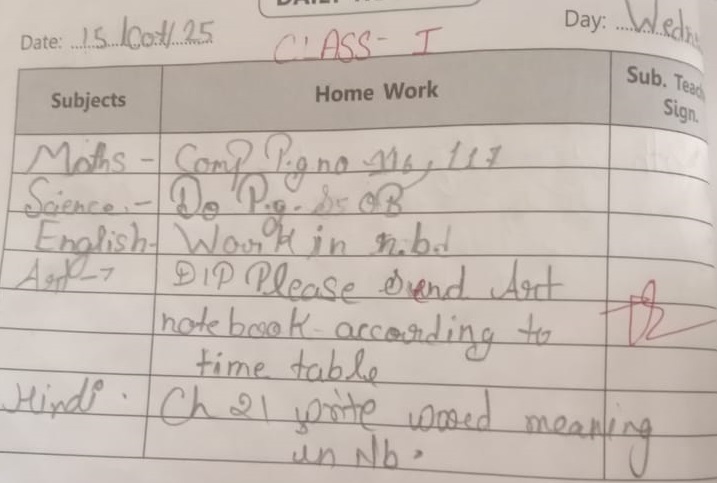 Date: 15/Oct/25 Day: Wedn
CLASS- I
Subjects Home Work Sub. Teac
Sign.
Maths - Comp P.g no 116, 117
Science - Do P.g. 85 OB
English- Work in n.b.
Art → DIP Please send Art
notebook according to
time table
Hindi. Ch 21 write word meaning
in Nb.